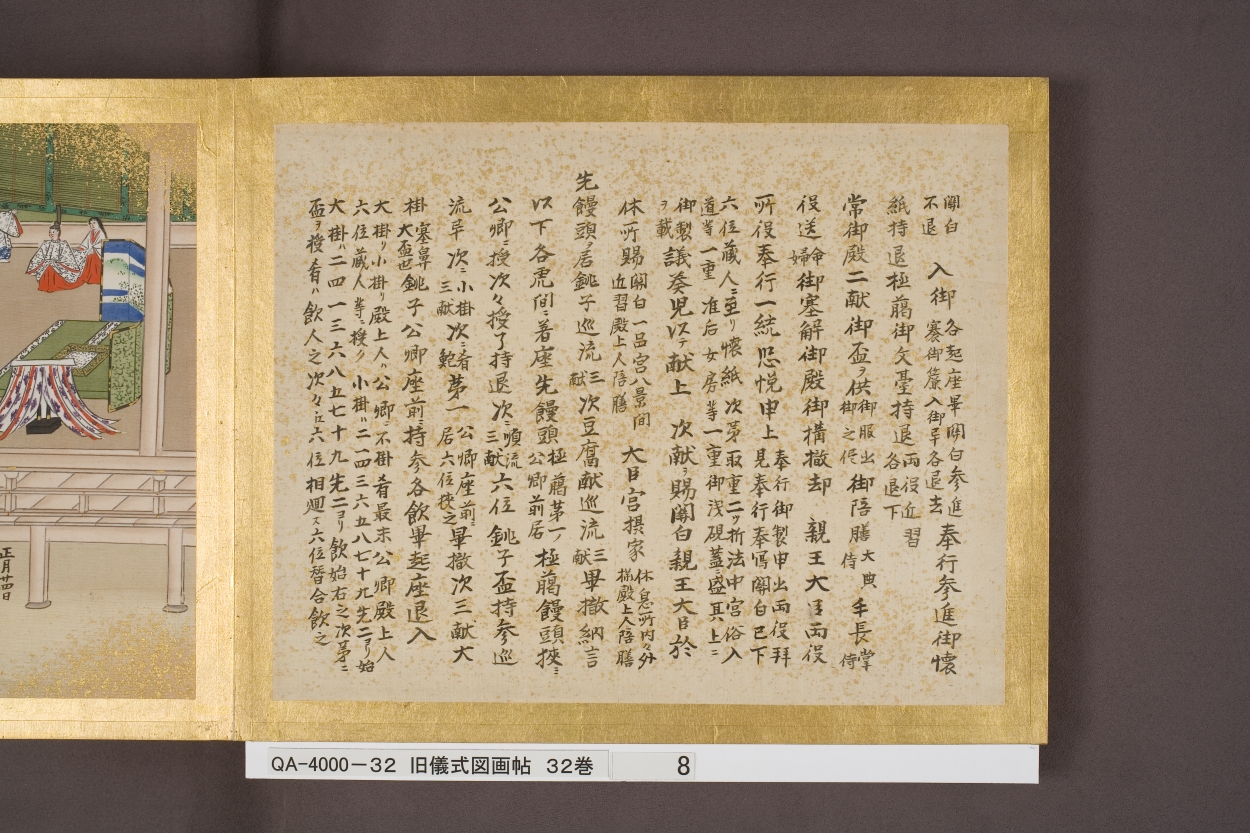 関白
不退
入御
各起座畢関白参進
褰御簾入御早各退去
奉行参進御懐
紙持退極﨟御文臺持退
両役近習
各退下
常御殿二献御盃ヲ供
御服出
御之侭
御陪膳
大典
侍
手長掌
侍
役送
命
婦
御塞解御殿御構撤却 親王大臣両役
所役奉行一統恐悦申上
奉行御製申出両役拝
見奉行奉寫関白已下
六位蔵人ニ至リ懐紙次第取重二ッ折法中宮俗入
道等一重准后女房等一重御浅硯蓋ニ盛其上ニ
御製
ヲ載
議奏児以テ献上 次献ヲ賜関白親王大臣於
休所賜
関白一品宮八景間
近習殿上人陪膳
大臣宮摂家
休息所内々外
様殿上人陪膳
先饅頭ヲ居銚子巡流
三
献
次豆腐献巡流
三
献
畢撤納言
以下各虎間ニ着座先饅頭
極﨟第一ノ
公卿前居
極﨟饅頭挾ミ
公卿ニ授次々授了持退次ニ
順流
三献
六位銚子盃持参巡
流早次ニ
小掛
三献
次ニ
肴
鮑
第一
公卿座前ニ
居六位挾之
畢撤次三献大
掛
塞鼻
大盃也
銚子公卿座前ニ持参各飲畢起座退入
大掛リ小掛リ殿上人ハ公卿ニ不掛肴最末公卿殿上人
六位蔵人等ニ授ク 小掛ハ二一四三六五八七十九先二ヨリ始
大掛ハ二四一三六八五七十九先二ヨリ飲始右之次第ニ
盃ヲ授肴ハ飲人之次々ニ江六位相廻ス六位替合飲之
正月廿四日
QA-4000-32 旧儀式図画帖 32巻 8